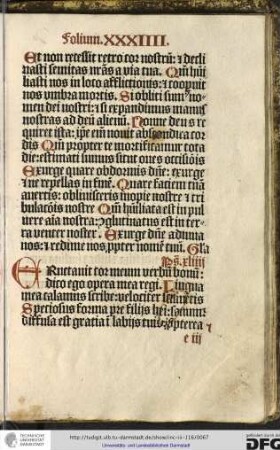 Folium. XXXIIII.
Et non recessit retro cor nostrū: ⁊ decli
nasti semitas nr̄as a via tua. Qm̄ hūi
liasti nos in loco afflictionis: ⁊ coopuit
nos vmbra mortis. Si obliti sumꝰ no
men dei nostri: ⁊ si expandimus manus
nostras ad deū alienū. Nonne deus re
quiret ista: ip̄e em̄ nouit abscondita cor
dis Qm̄ propter te mortificamur tota
die: estimati sumus sicut oues occisiōis
Exurge quare obdormis dn̄e: exurge
⁊ ne repellas in finē. Quare faciem tuā
auertis: obliuisceris inopie nostre ⁊ tri
bulatōis nostre Qm̄ hūiliata est in pul
uere aīa nostra: ꝯglutinatus est in ter
ra venter noster. Exurge dn̄e adiuua
nos: ⁊ redime nos ꝓpter nomē tuū. Gla
Ps. xliiij
ERuctauit cor meum verbū bonū:
dico ego opera mea regi. Lingua
mea calamus scribe: velociter scribētis
Speciosus forma pre filijs hoīm:
diffusa est gratia ī labijs tuis: ꝓpterea
e iij
http://tudigit.ulb.tu-darmstadt.de/show/inc-iii-116/0067
Universitäts- und Landesbibliothek Darmstadt
TECHNISCHE
UNIVERSITÄT
DARMSTADT
gefördert durch die
DFG